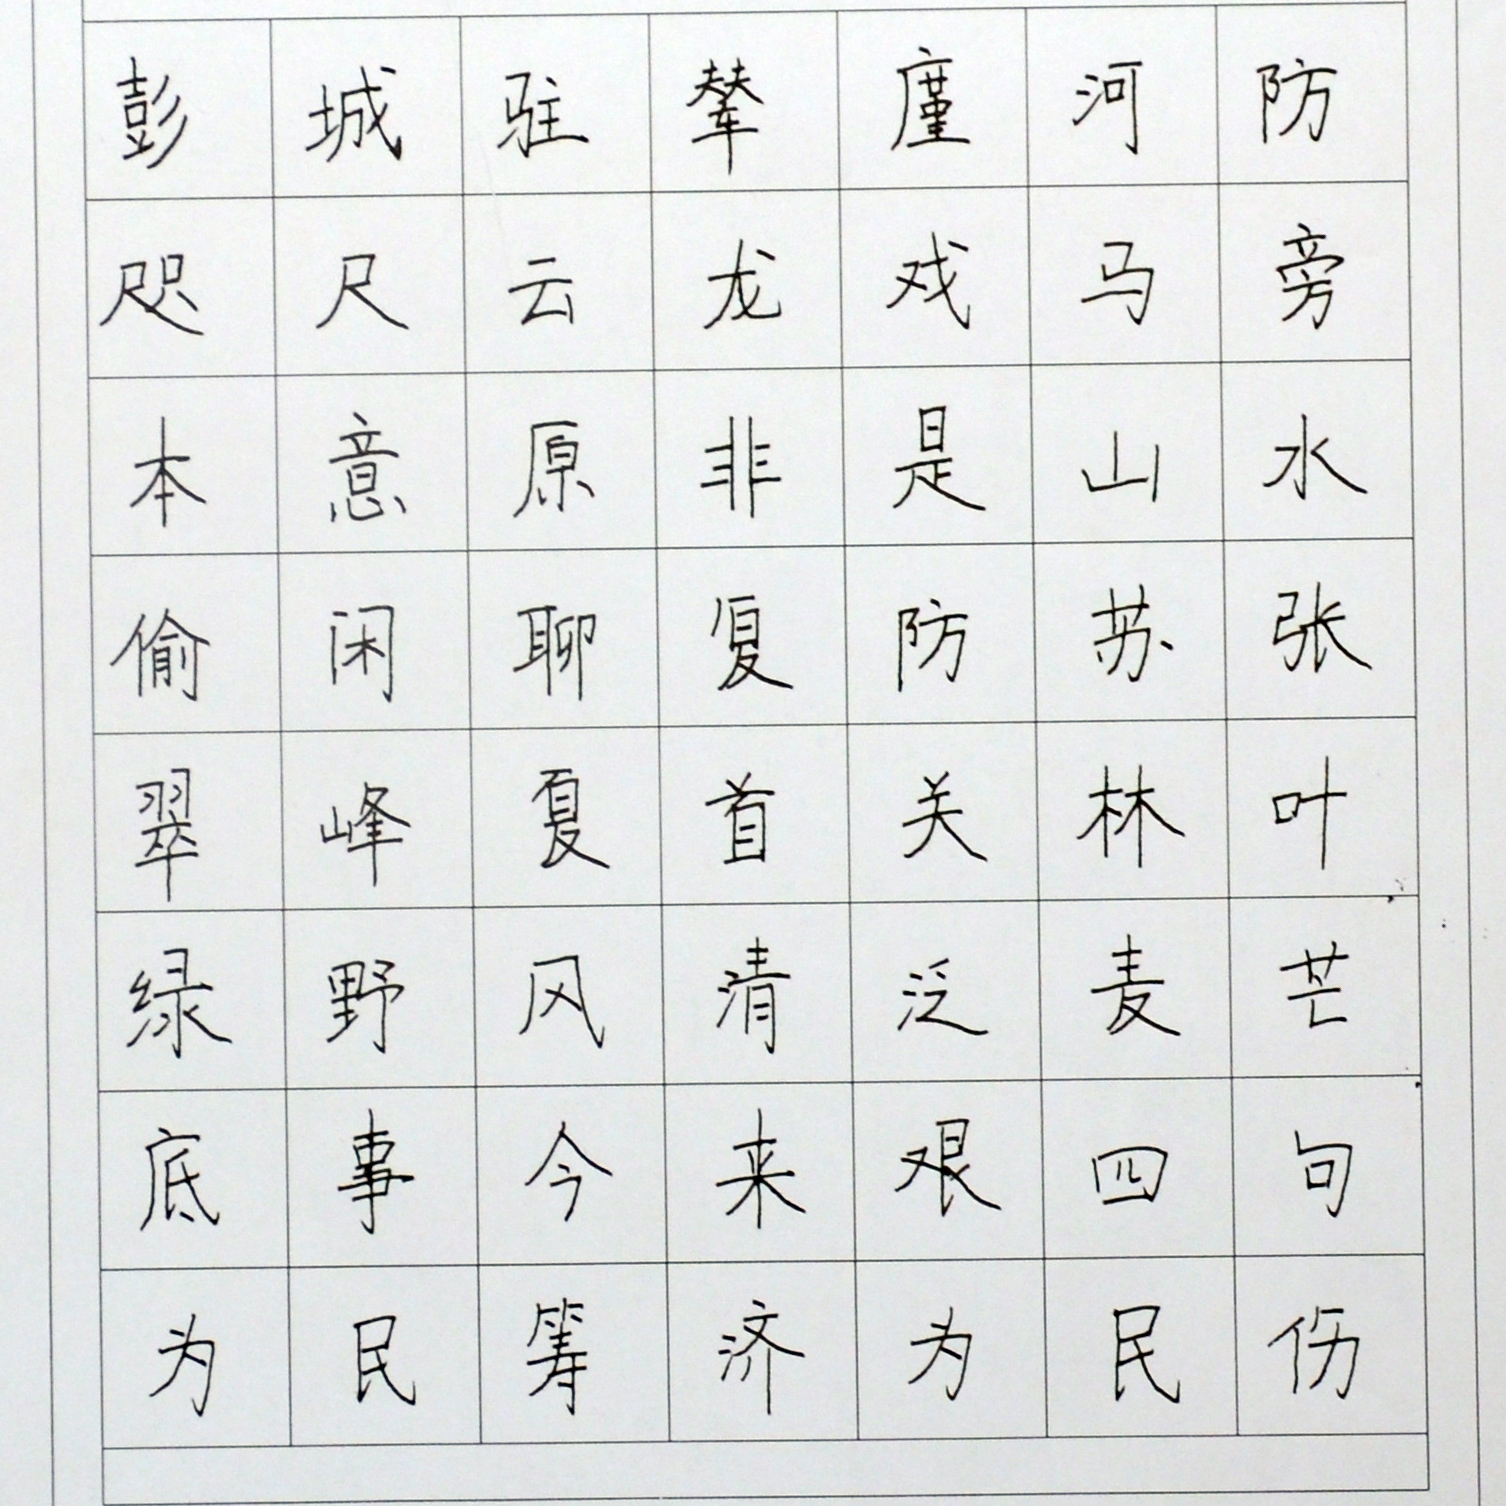 彭城驻辇廑河防
咫尺云龙戏马旁
本意原非是山水
偷闲聊复防苏张
翠峰夏首关林叶
绿野风清泛麦芒
底事今来艰四句
为民筹济为民伤